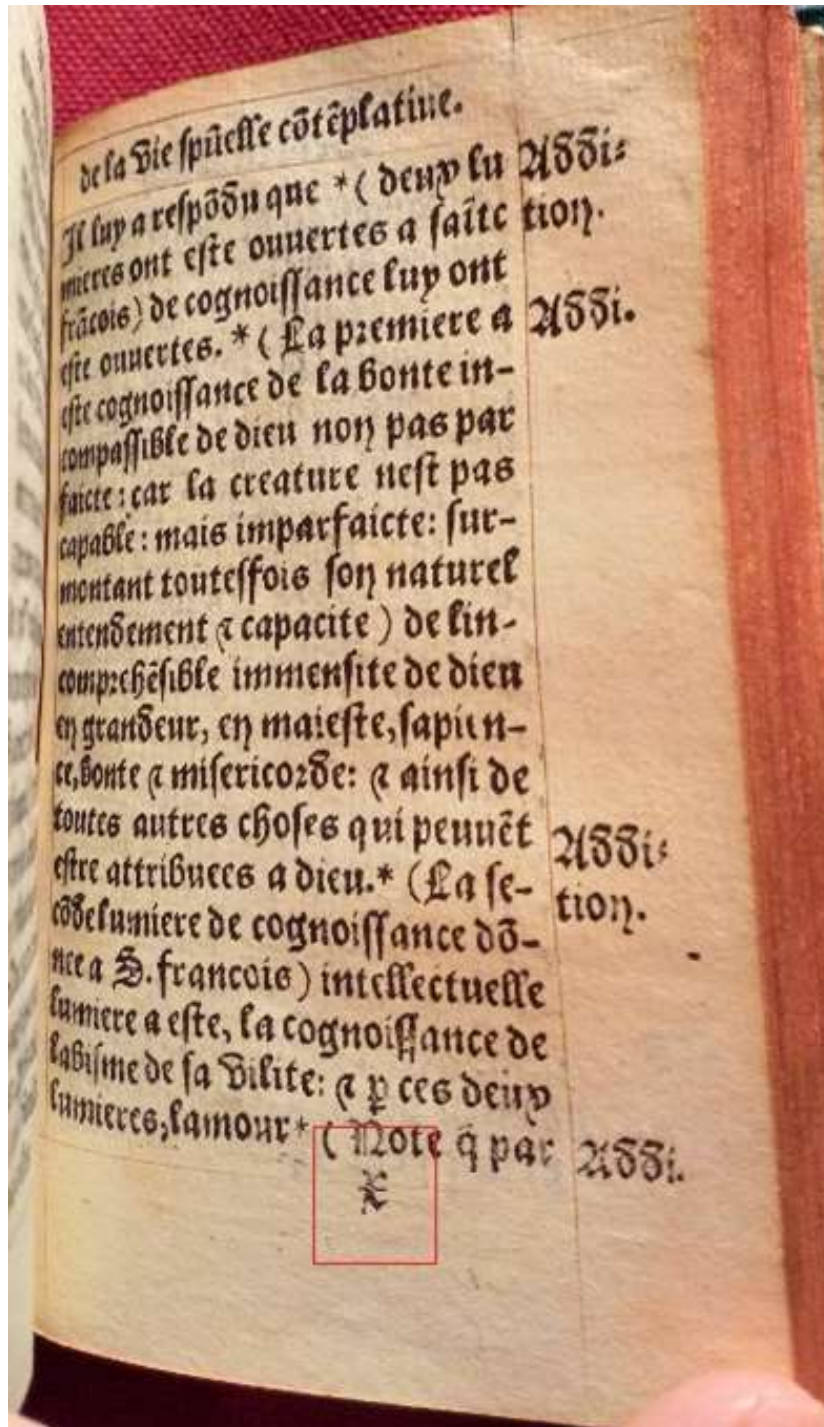 de la vie spũelle cõtẽplatiue.
Il luy a respõdu que * ( deux lu Addi-
mieres ont este ouuertes a saĩtc tion.
frãcois) de cognoissance luy ont
este ouuertes. * ( La premiere a Addi.
este cognoissance de la bonte in-
compassible de dieu non pas par
faicte : car la creature nest pas
capable : mais imparfaicte: sur-
montant toutesfois son naturel
entendement ⁊ capacite ) de lin-
comprehẽsible immensite de dieu
en grandeur, en maieste, sapien-
ce, bonte ⁊ misericorde: ⁊ ainsi de
toutes autres choses qui peuuẽt Addi-
estre attribuees a dieu.* (La se- tion.
cõde lumiere de cognoissance dõ-
nee a S. francois) intellectuelle
lumiere a este, la cognoissance de
labisme de sa vilite: ⁊ ꝑ ces deux
lumieres, lamour * ( Note q̃ par Addi.